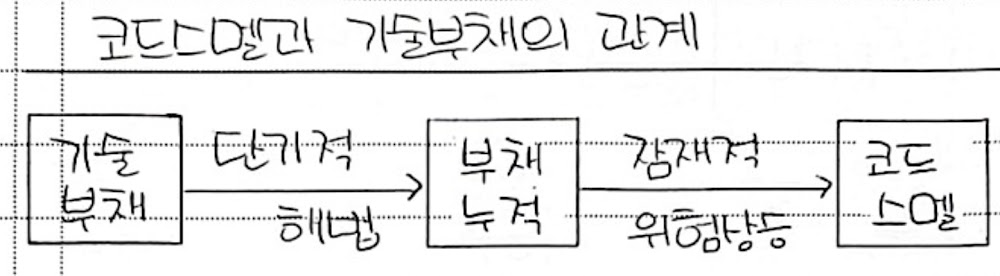 코드스멜과 기술부채의 관계
기술
부채
단기적
해법
부채
누적
잠재적
위험상승
코드
스멜